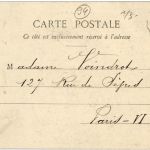 34
CARTE POSTALE
Ce côté est exclusivement réservé à l'adresse
Madame Voindrot
127 Rue de Sèvres
Paris-VI